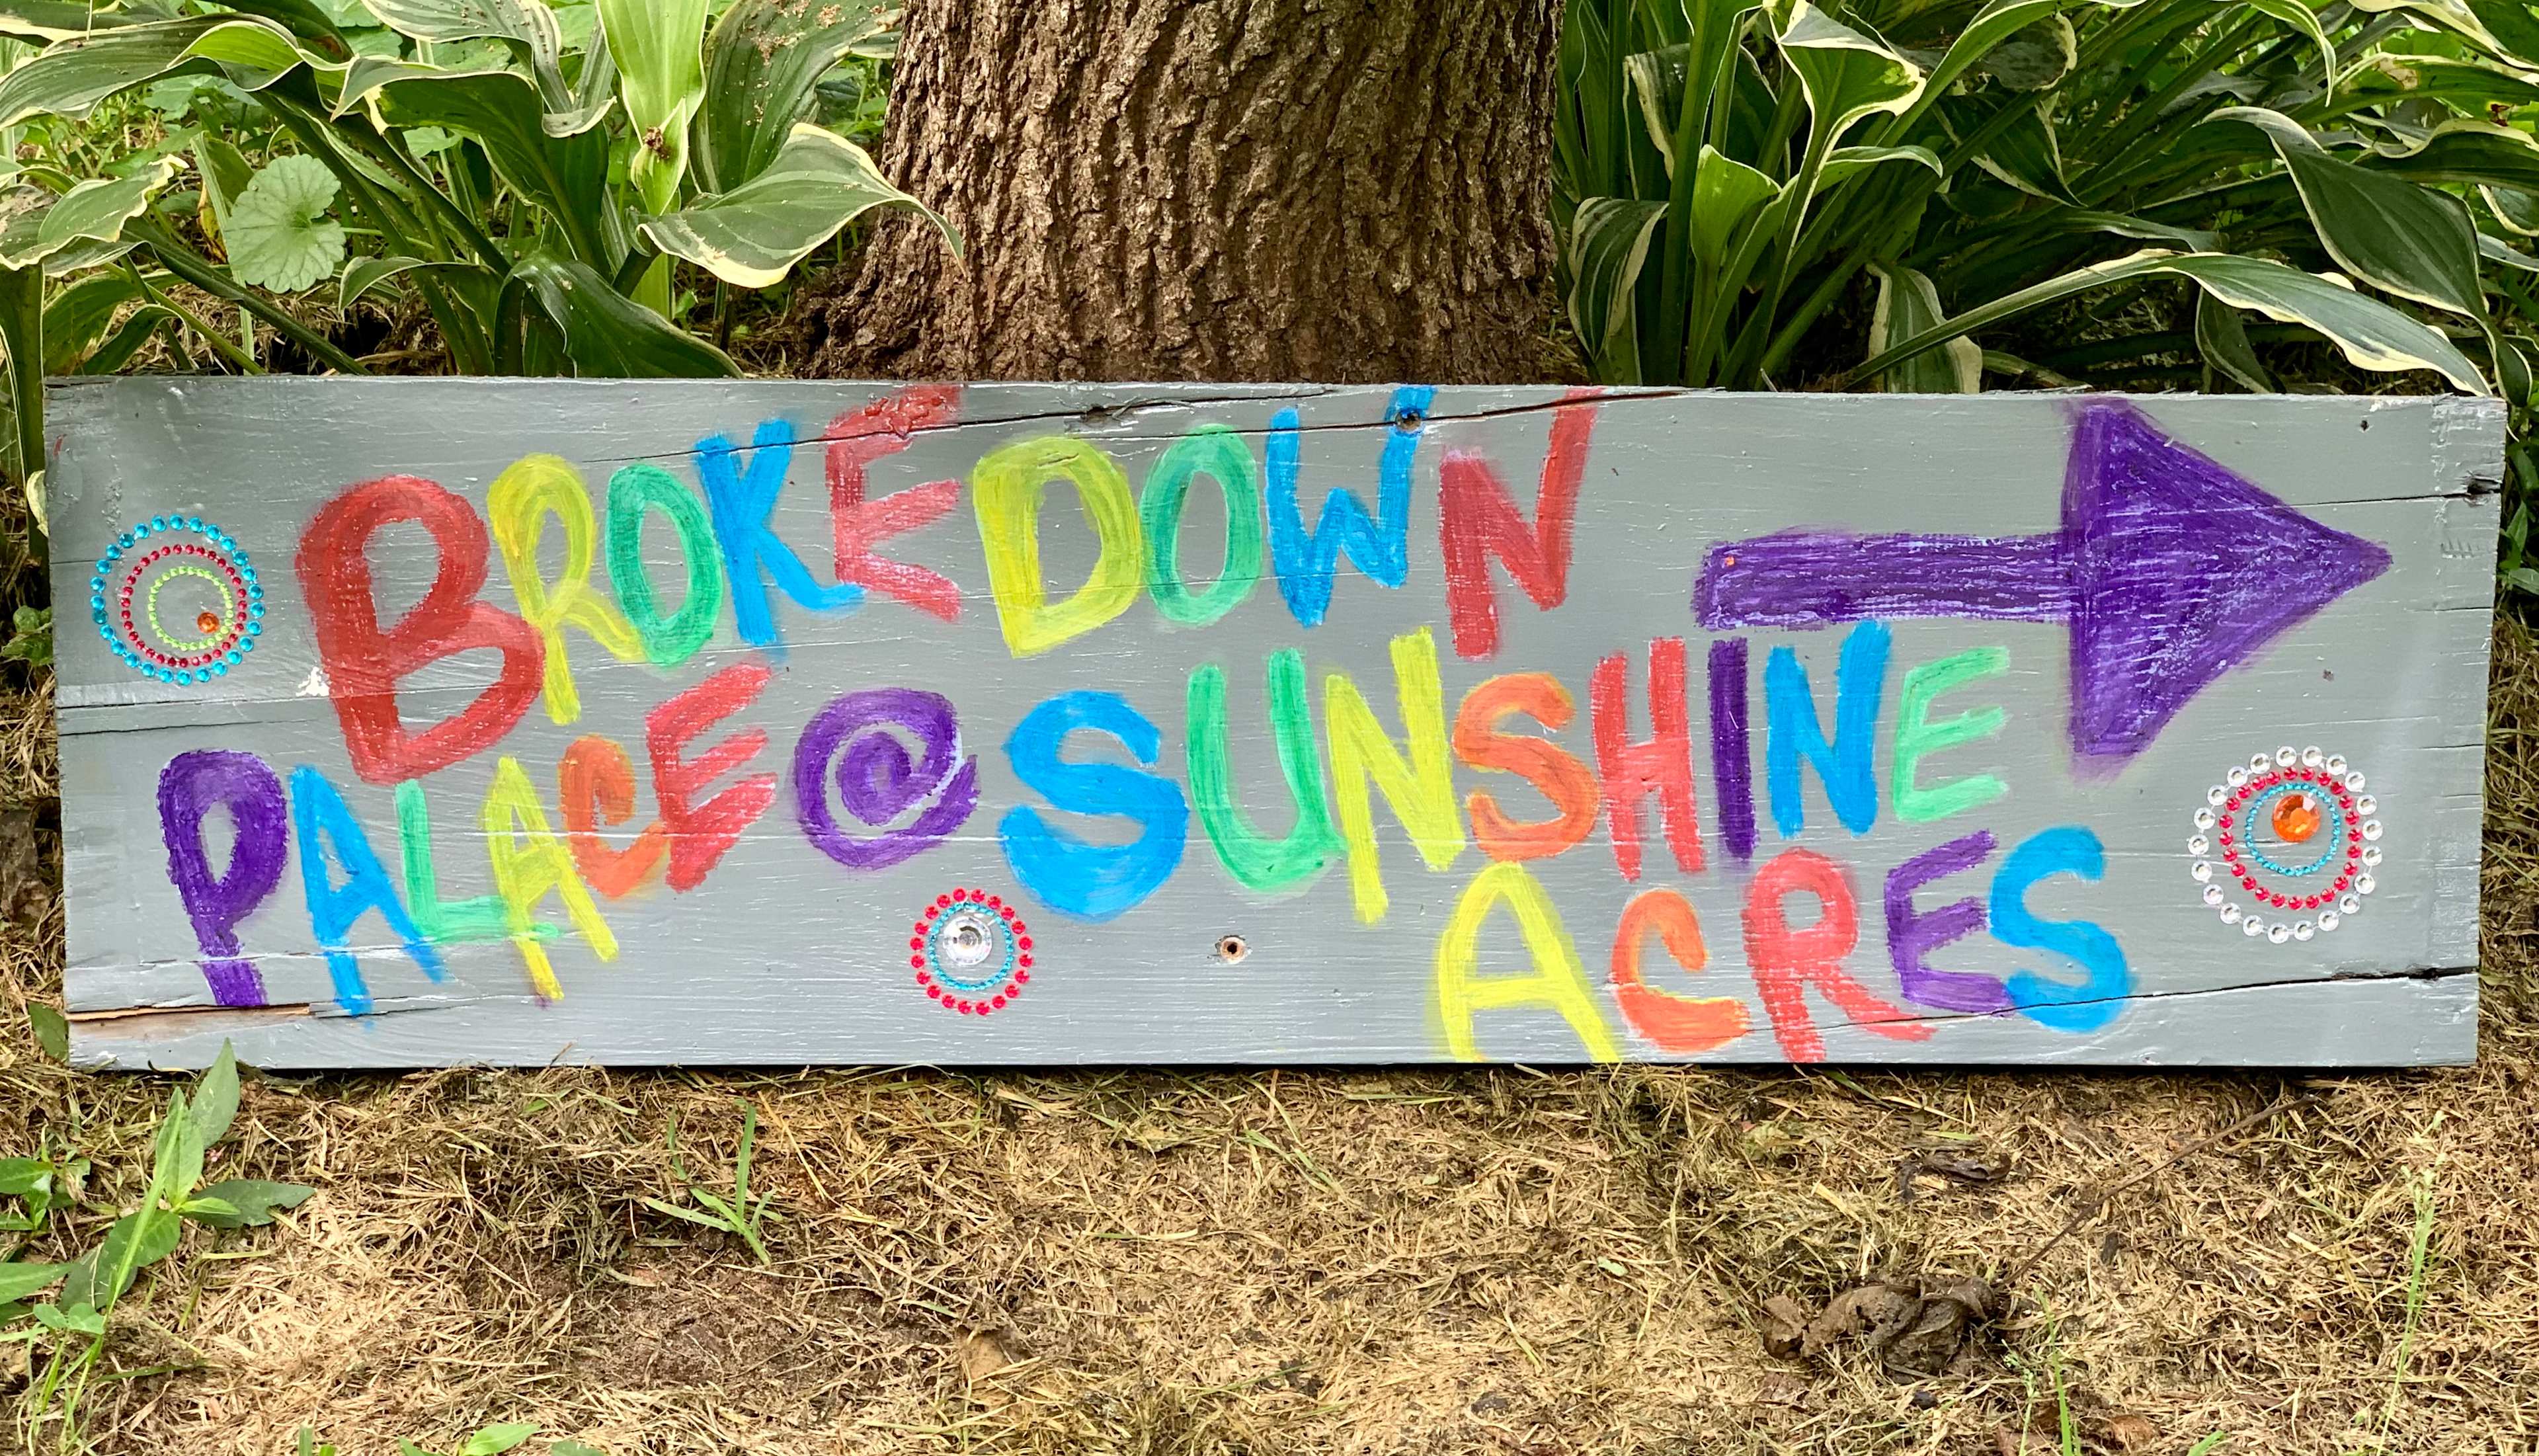 BROKEDOWN
PALACE @ SUNSHINE
ACRES